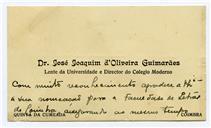 Dr. José Joaquim d'Oliveira Guimarães
Lente da Universidade e Director do Colegio Moderno
Com muito reconhecimento agradece a
a sua nomeação para a Faculdade de Letras
de Coimbra, assegurando ao mesmo tempo
QUINTA DA CUMEADA
COIMBRA